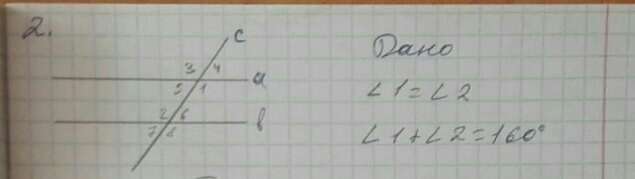 2.
c
3 4
a
5 1
2 6
b
7 8
Дано
∠1=∠2
∠1+∠2=160°